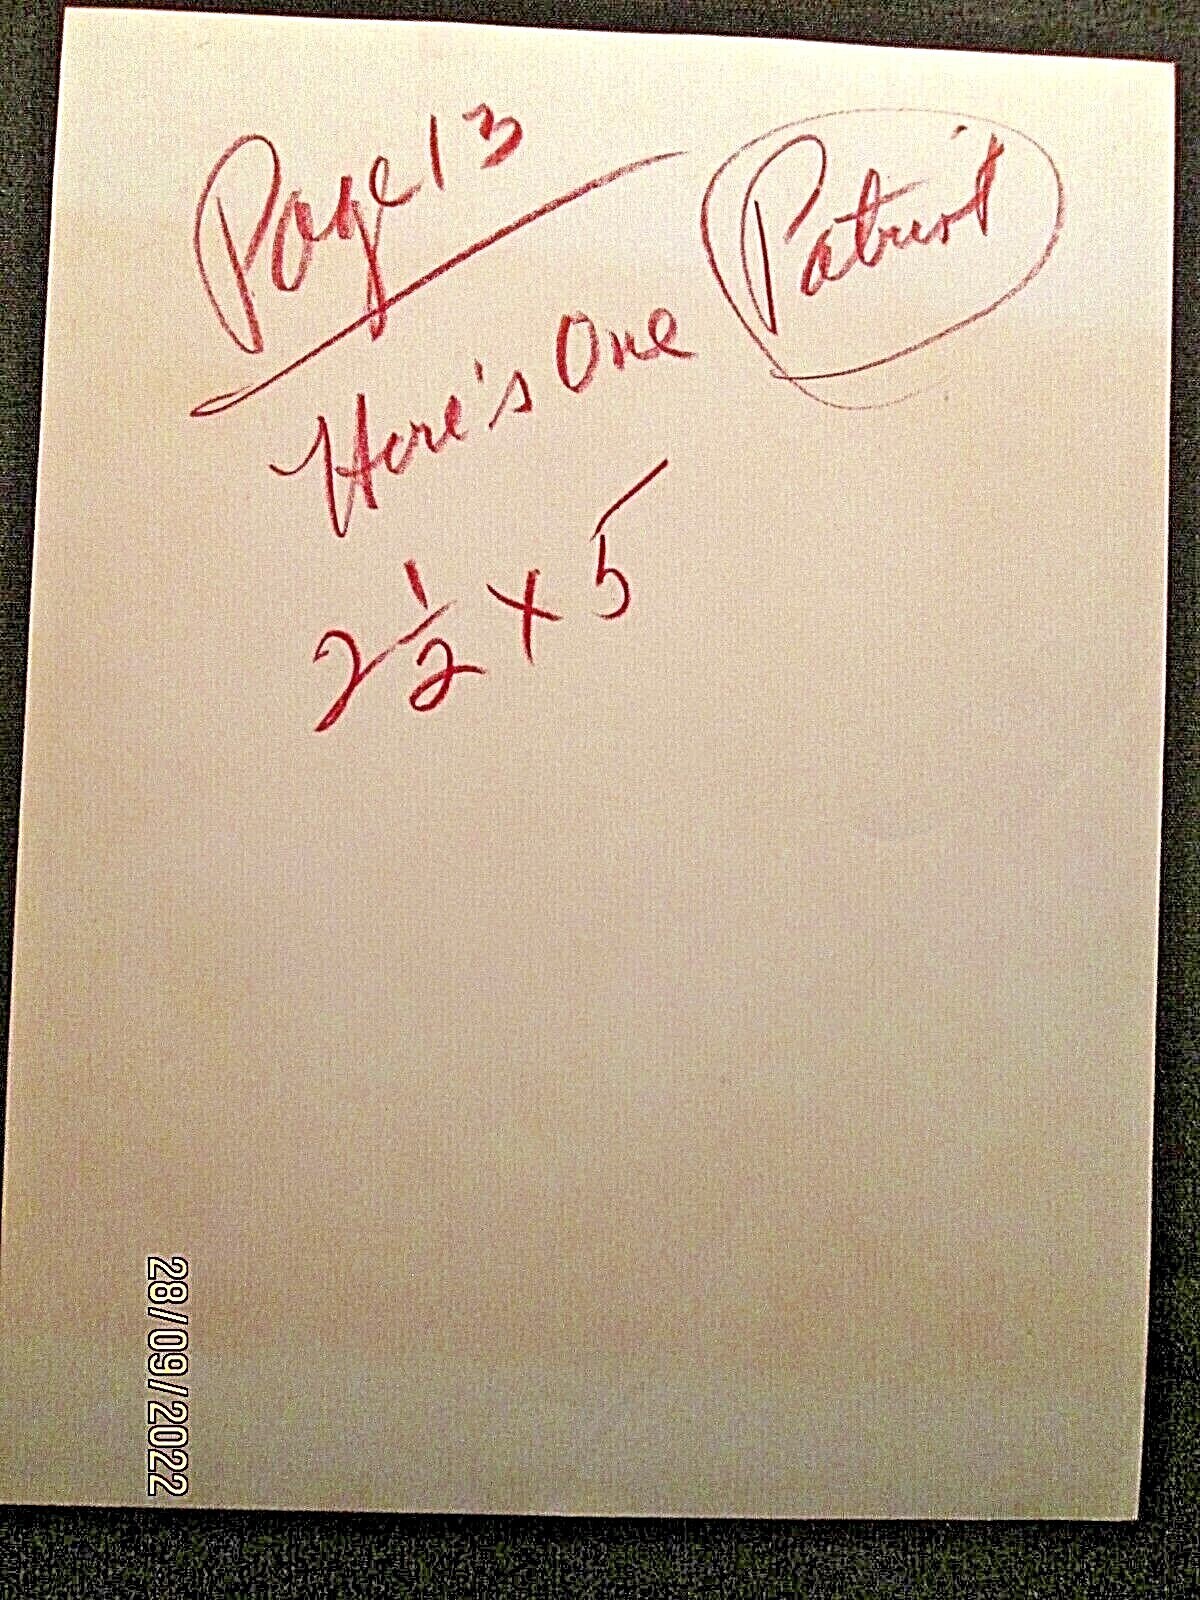 Page 13
Patriot
Here's One
2 1/2 x 5
28/09/2022